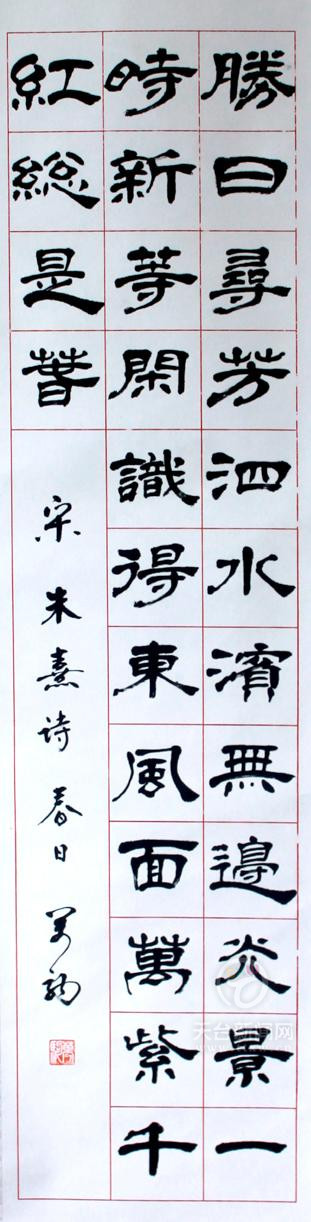 勝日尋芳泗水濱無邊光景一
時新等閑識得東風面萬紫千
紅総是春
宋朱熹诗春日
天台新闻网